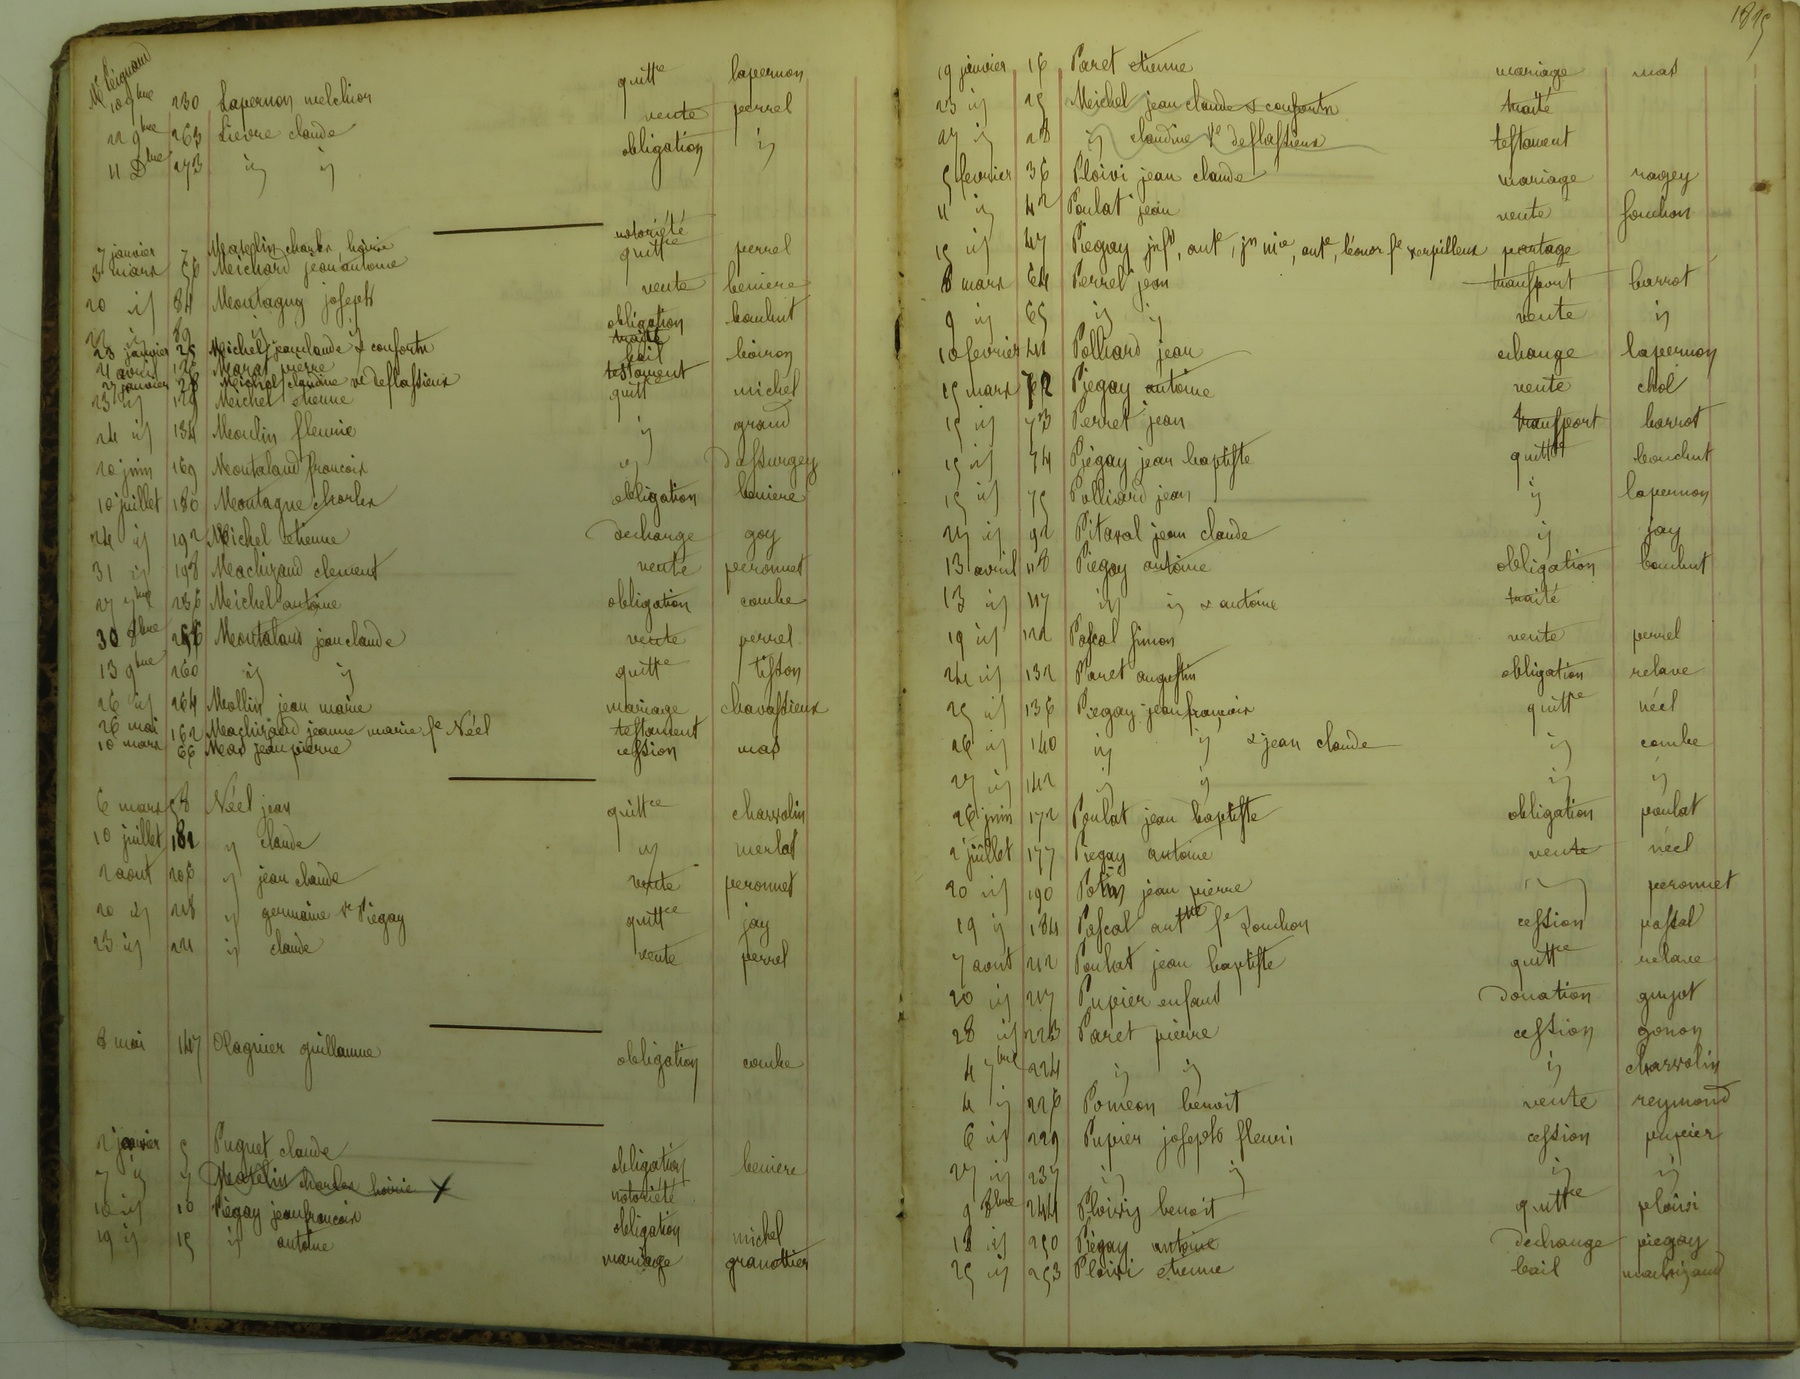 Me Peignaud
10 9bre 230 Lapernon melchior quittce lapernon
22 9bre 263 Lievre claude vente perrel
11 Dbre 273 id id obligation id
7 janvier 7 charles hoirie notoriété
3 mars 56 Meichard jean antoine quittce perrel
20 id 84 Montagny joseph vente beniere
22 id 89 id id obligation bouchut
23 janvier 25 Michel jean claude & consorts traité
4 avril Marat pierre bail boiron
27 janvier 28 Michel claudine ve deflassieux testament
23 id 128 Michel etienne quittce michel
24 id 134 Moulin fleurie id grand
20 juin 169 Montaland francois id Dassurgey
10 juillet 180 Montagne charles obligation beniere
24 id 192 Michel etienne decharge goy
31 id 198 Machizaud clement vente peronnet
27 7bre 236 Michel antoine obligation combe
30 8bre Montaland jean claude vente perrel
13 9bre 260 id id quittce tisson
26 id 264 Mollin jean marie mariage chavassieux
26 mai 162 Machizaud jeanne marie fe Néel testament
10 mars 66 Mas jean pierre cession mas
6 mars 58 Néel jean quittce charvolin
10 juillet 182 id claude id merlat
2 aout 206 id jean claude vente peronnet
20 id 218 id germaine ve Piegay quittce jay
23 id 221 id claude vente perrel
8 mai 147 Olagnier guillaume obligation combe
2 janvier 5 Puguet claude obligation beniere
7 id 7 charles hoirie x notoriété
10 id 10 Piegay jean francois obligation michel
19 id 15 id antoine mariage granottier
1825
19 janvier 16 Paret etienne mariage mas
23 id 25 Michel jean claude & consorts traité
27 id 28 id claudine ve deflassieux testament
5 fevrier 36 Ploivi jean claude mariage ragey
11 id 42 Poulat jean vente fouchon
15 id 47 Piegay jnfs, ante, jn nie, ant, léonor fe verpilleux partage
8 mars 64 Perrel jean transport barrot
9 id 65 id id vente id
10 fevrier 41 Polliard jean echange lapernon
15 mars 72 Piegay antoine vente chol
15 id 73 Perret jean transport barrot
15 id 74 Piégay jean baptiste quittce bouchut
15 id 75 Polliard jean id lapernon
27 id 92 Pitaval jean claude id jay
13 avril 118 Piegay antoine obligation bouchut
13 id 117 id id & antoine traité
19 id 122 Pascal simon vente perrel
24 id 132 Paret augustin obligation relave
25 id 136 Piegay jean francois quittce néel
26 id 140 id id & jean claude id combe
27 id 142 id id id id
26 juin 172 Poulat jean baptiste obligation poulat
2 juillet 177 Piegay antoine vente néel
20 id 190 Potin jean pierre id peronnet
19 id 184 Pascal antne fe Zouchon cession pascal
7 aout 212 Poulat jean baptiste quittce relave
20 id 217 Pupier enfans Donation guyot
28 id 223 Paret pierre cession gonon
4 7bre 224 id id id charvolin
4 id 226 Poméon benoit vente reymond
6 id 229 Pupier joseph fleuri cession pupier
27 id 237 id id id id
9 8bre 244 Ploivy benoit quittce ploivi
18 id 250 Piegay antoine Decharge piegay
25 id 253 Ploivi etienne bail